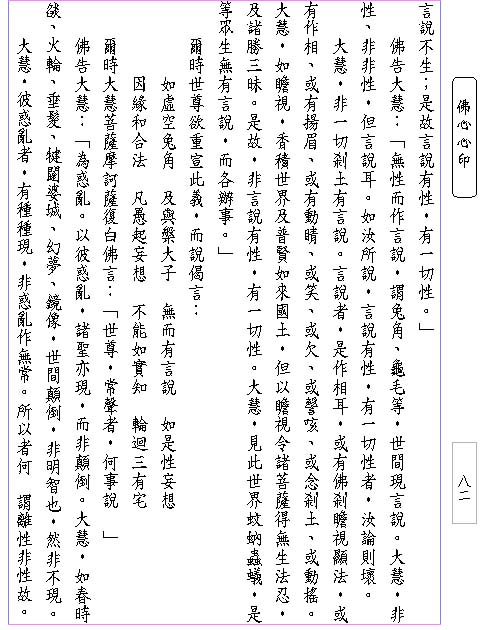 佛心心印
八二
言說不生；是故言說有性，有一切性。」
佛告大慧：「無性而作言說，謂兔角、龜毛等，世間現言說。大慧，非
性、非非性，但言說耳。如汝所說，言說有性，有一切性者，汝論則壞。
大慧，非一切剎土有言說。言說者，是作相耳，或有佛剎瞻視顯法，或
有作相、或有揚眉、或有動睛、或笑、或欠、或謦咳、或念剎土、或動搖。
大慧，如瞻視，香積世界及普賢如來國土，但以瞻視令諸菩薩得無生法忍，
及諸勝三昧。是故，非言說有性，有一切性。大慧，見此世界蚊蚋蟲蟻，是
等眾生無有言說，而各辦事。」
爾時世尊欲重宣此義，而說偈言：
如虛空兔角　及與槃大子　無而有言說　如是性妄想
因緣和合法　凡愚起妄想　不能如實知　輪迴三有宅
爾時大慧菩薩摩訶薩復白佛言：「世尊，常聲者，何事說　」
佛告大慧：「為惑亂。以彼惑亂，諸聖亦現，而非顛倒。大慧，如春時
燄、火輪、垂髮、犍闥婆城、幻夢、鏡像，世間顛倒，非明智也，然非不現。
大慧，彼惑亂者，有種種現，非惑亂作無常。所以者何　謂離性非性故。